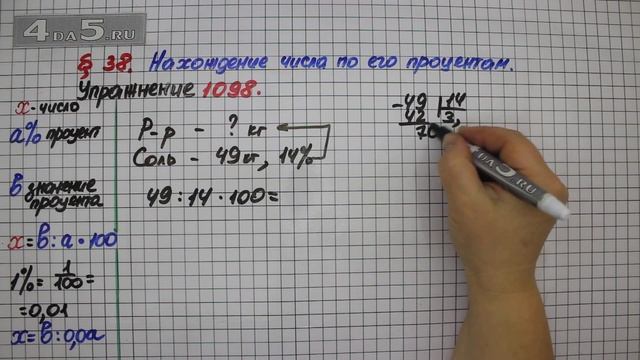 4DA5.RU
§ 38. Нахождение числа по его процентам.
Упражнение 1098.
x - число
a% процент
в значение
процента
x = в : a • 100
1% = 1/100 =
= 0,01
x = в : 0,0a
Р-р - ? кг
Соль - 49 кг, 14%
49 : 14 • 100 =
- 49 | 14
42 | 3,
70
4DA5.RU